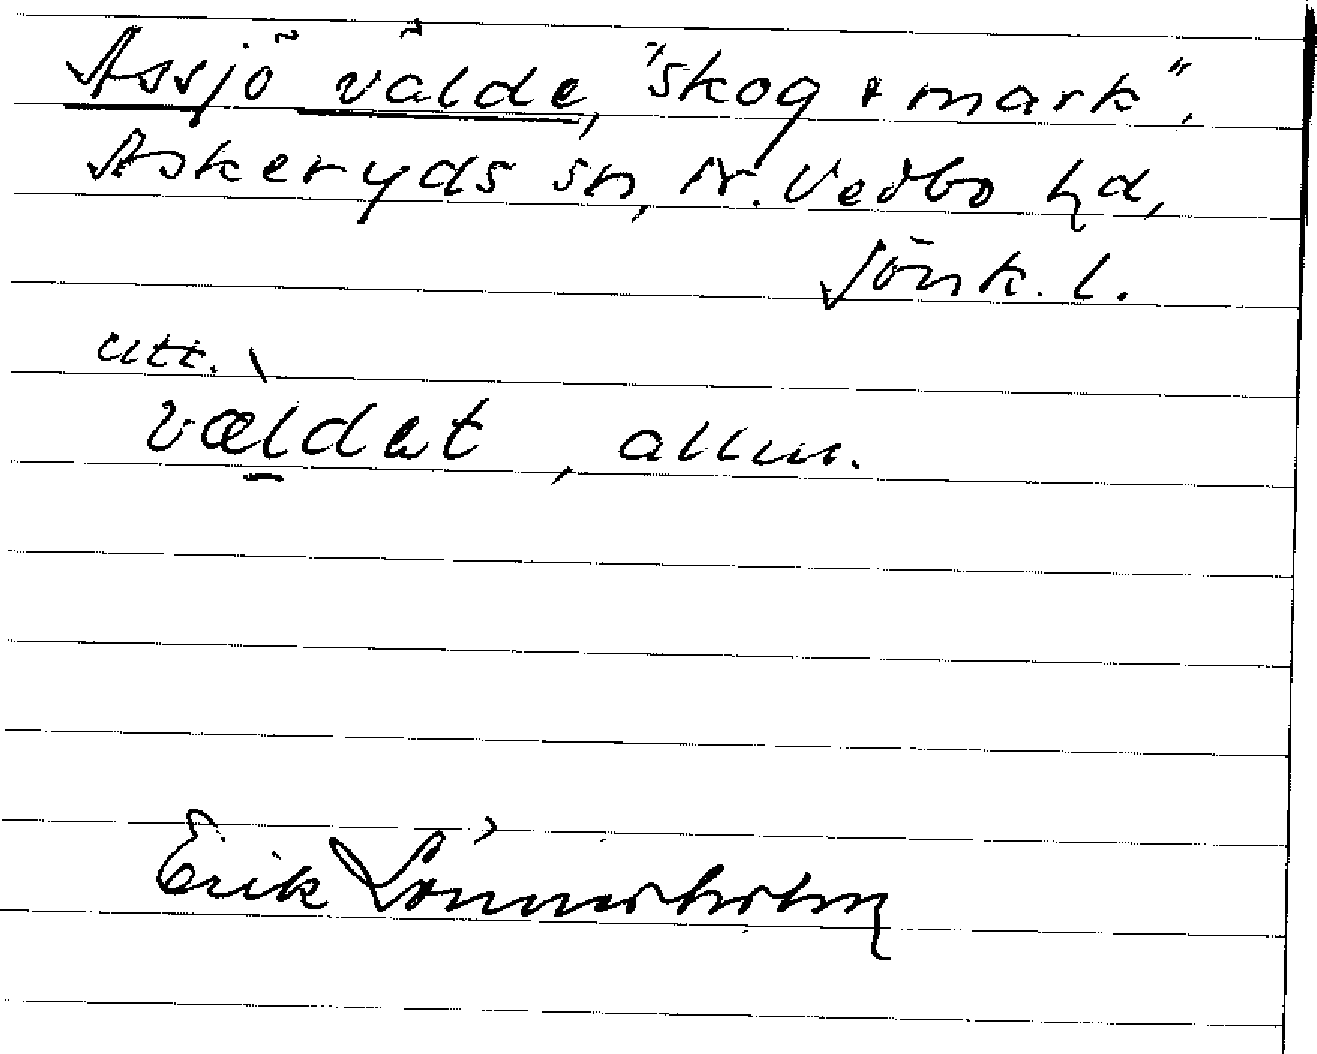 Assjö välde, "skog + mark".
Askeryds sn, N. Vedbo hd,
Jönk. l.
utt.
vældat, allm.
Erik Lönnerholm